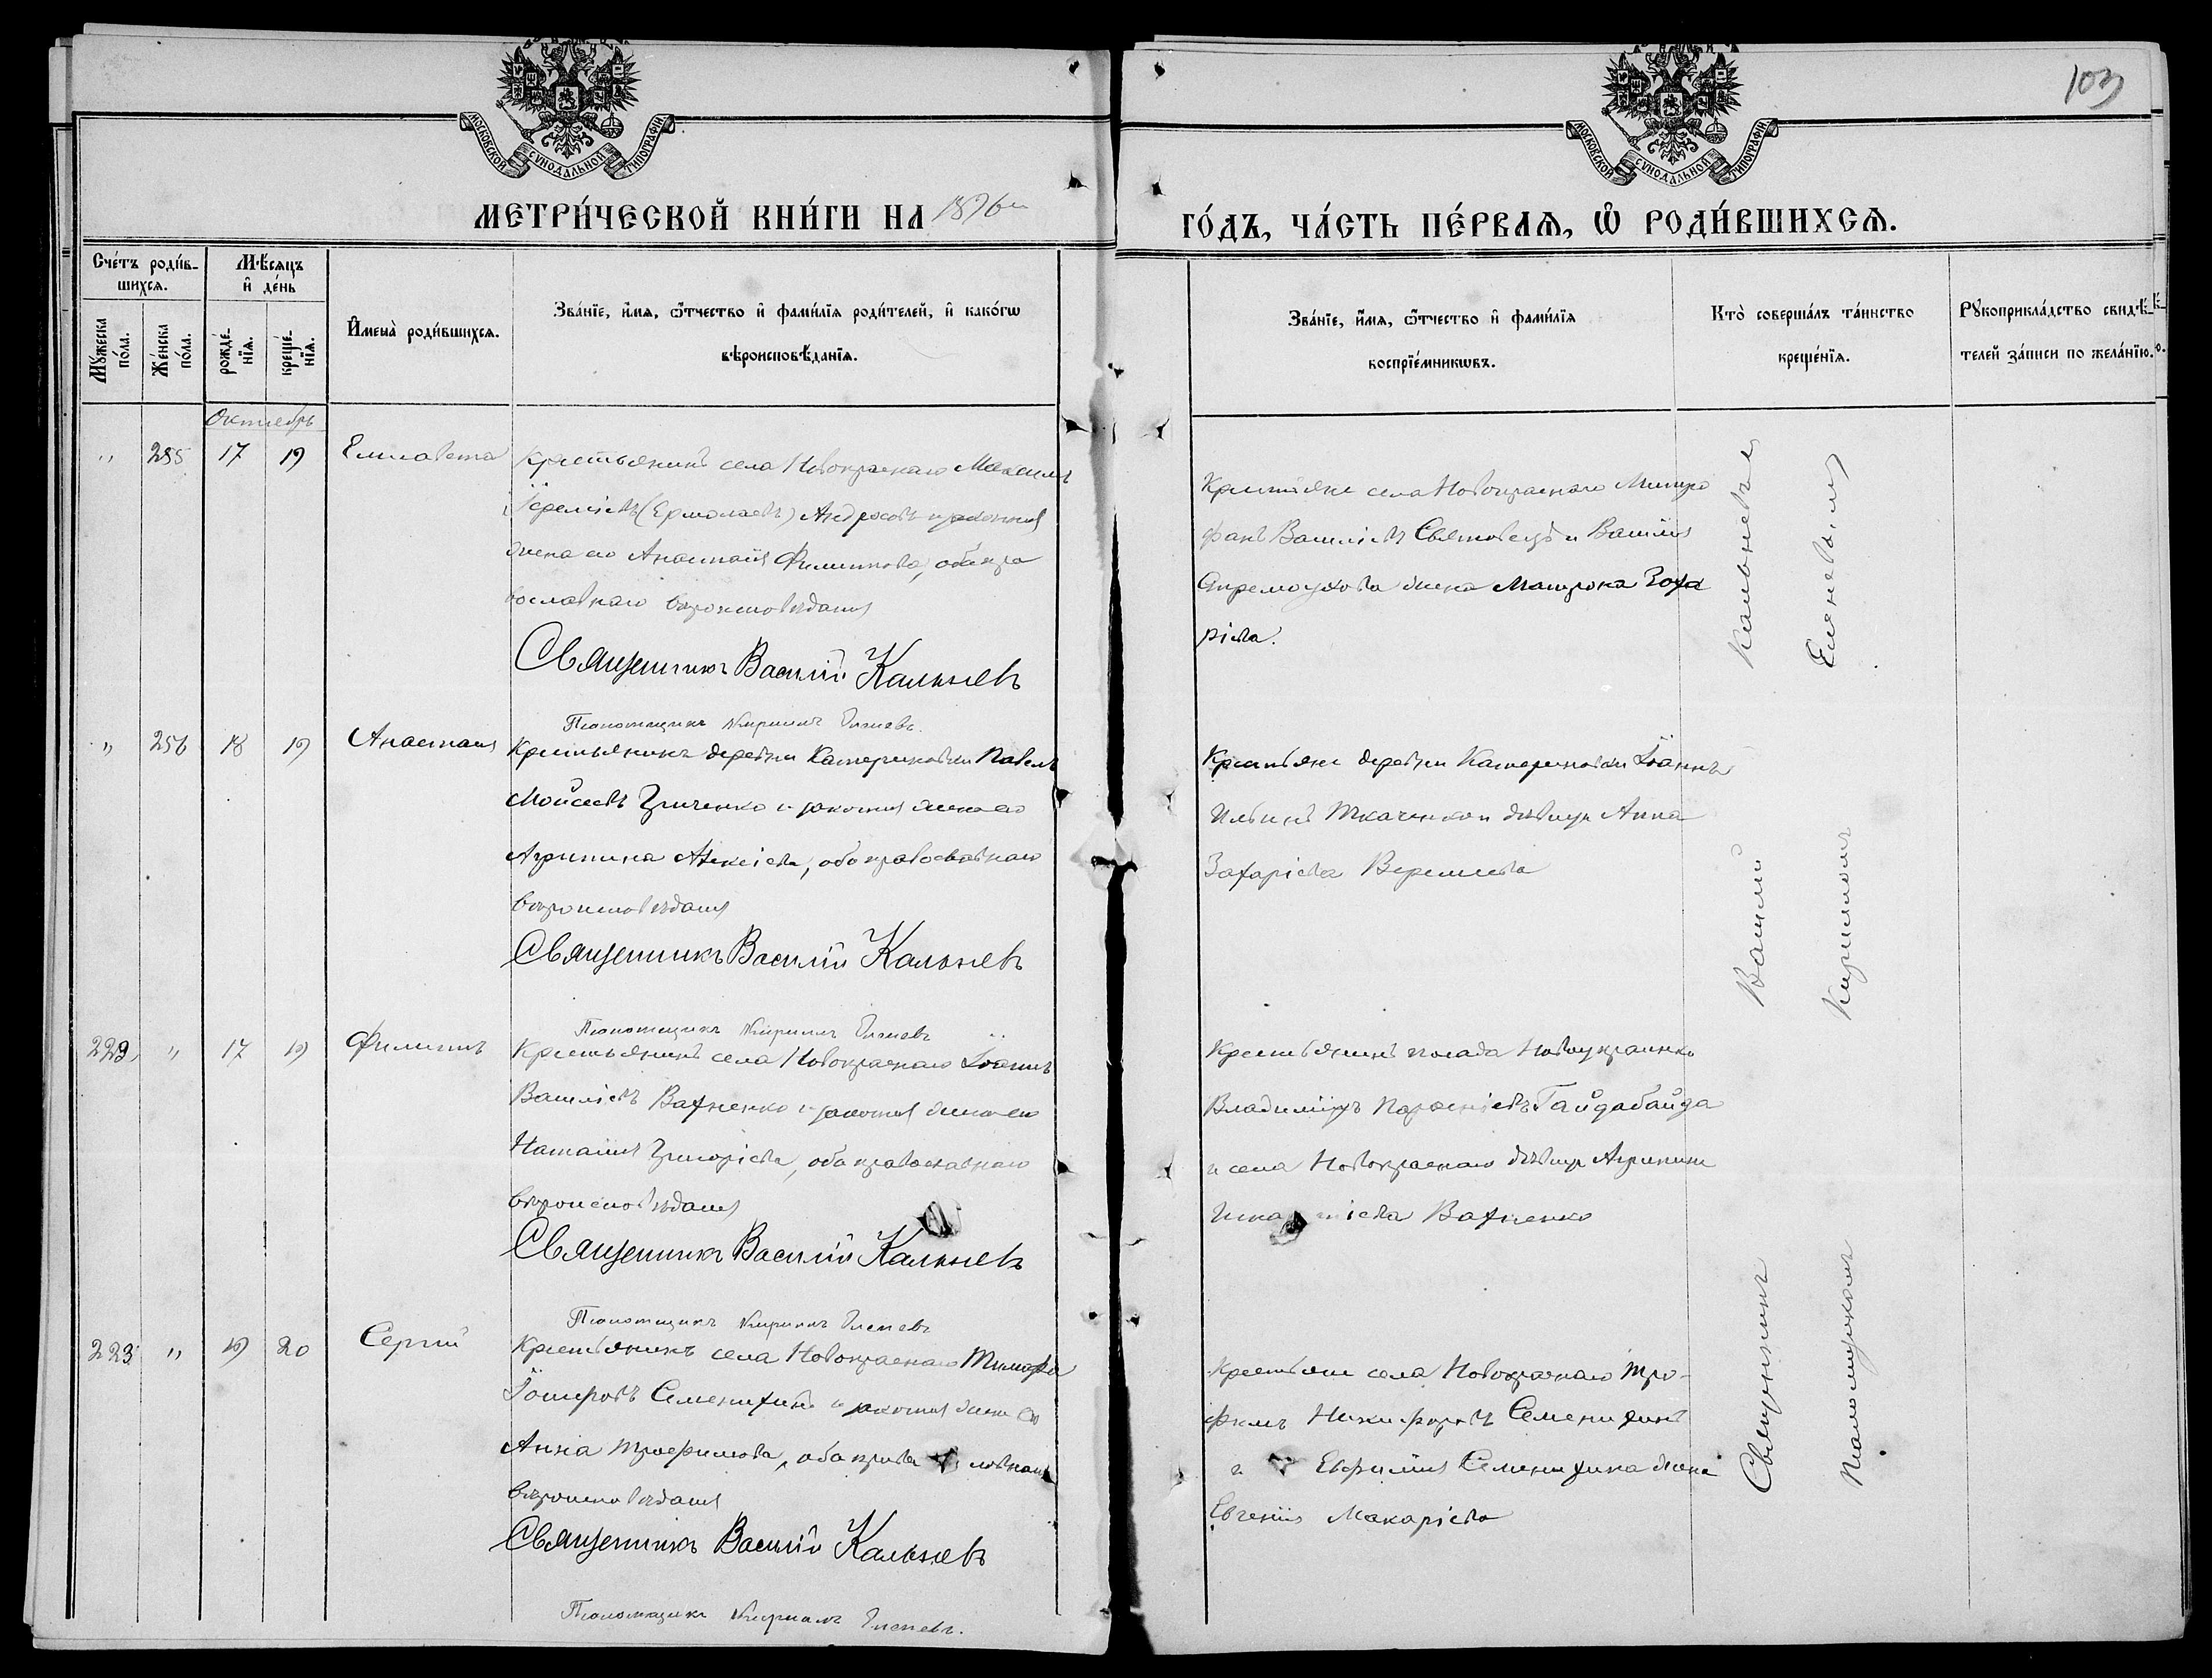 103
МОСКОВСКОЙ СѴНОДАЛЬНОЙ ТИПОГРАФІИ
МОСКОВСКОЙ СѴНОДАЛЬНОЙ ТИПОГРАФІИ
МЕТРИ́ЧЕСКОЙ КНИ́ГИ НА 1876й
ГО́ДЪ, ЧА́СТЬ ПЕ́РВАѦ, Ѽ РОДИ́ВШИХСѦ.
Сче́тъ роди́в-
шихсѧ.
Мѣ́сяцъ
и҆ де́нь
Мꙋ́жеска
по́ла.
Же́нска
по́ла.
рожде́-
нїѧ.
креще́-
нїѧ.
И҆мена̀ роди́вшихсѧ.
Зва́нїе, и҆́мѧ, ѻ҆́тчество и҆ фами́лїѧ роди́телей, и҆ како́гѡ
вѣроисповѣ́данїѧ.
Зва́нїе, и҆́мѧ, ѻ҆́тчество и҆ фами́лїѧ
воспрїе́мникѡвъ.
Кто̀ соверша́лъ та́инство
креще́нїѧ.
Рꙋкоприкла́дство свидѣ́-
телей за́писи по жела́нїю.
Октябрь
" 255 17 19 Елисавета
Крестьянинъ села Новокраснаго Максимъ
Іереміевъ (Ермолаевъ) Андросовъ и законная
жена его Анастасія Филиппова, оба пра
вославнаго вѣроисповѣданія
Священникъ Василій Кальневъ
Псаломщикъ Кириллъ Еленевъ.
Крестьяне села Новокраснаго Митро
фанъ Василіевъ Святовецъ и Василія
жена Матрона Заха
ріева.
" 256 18 19 Анастасія
Крестьянинъ деревни Катериновки Павелъ
Моисеевъ Гриченко и законная жена его
Агрипина Алексіева, оба православнаго
вѣроисповѣданія
Священникъ Василій Кальневъ
Псаломщикъ Кириллъ Еленевъ
Крестьяне деревни Катериновки Іоаннъ
Ильинъ Ткаченко и дѣвица Анна
Захаріева
229 " 17 19 Филиппъ
Крестьянинъ села Новокраснаго Іоаннъ
Василіевъ Вахненко и законная жена его
Наталія Григоріева, оба православнаго
вѣроисповѣданія
Священникъ Василій Кальневъ
Псаломщикъ Кириллъ Еленевъ
Крестьянинъ посада Новоукраинки
Владиміръ Парѳеніевъ Гайдабайда
и села Новокраснаго дѣвица Агрипина
Вахненко
223 " 19 20 Сергій
Крестьянинъ села Новокраснаго Тимофей
Семенихинъ и законная жена его
Анна Трофимова, оба православнаго
вѣроисповѣданія
Священникъ Василій Кальневъ
Псаломщикъ Кириллъ Еленевъ.
Крестьяне села Новокраснаго Тро-
фимъ Никифоровъ Семенихинъ
и Евфимія Семенихина жена
Евгенія Макаріева
Священникъ Василій Кальневъ
Псаломщикомъ Кирилломъ Еленевымъ